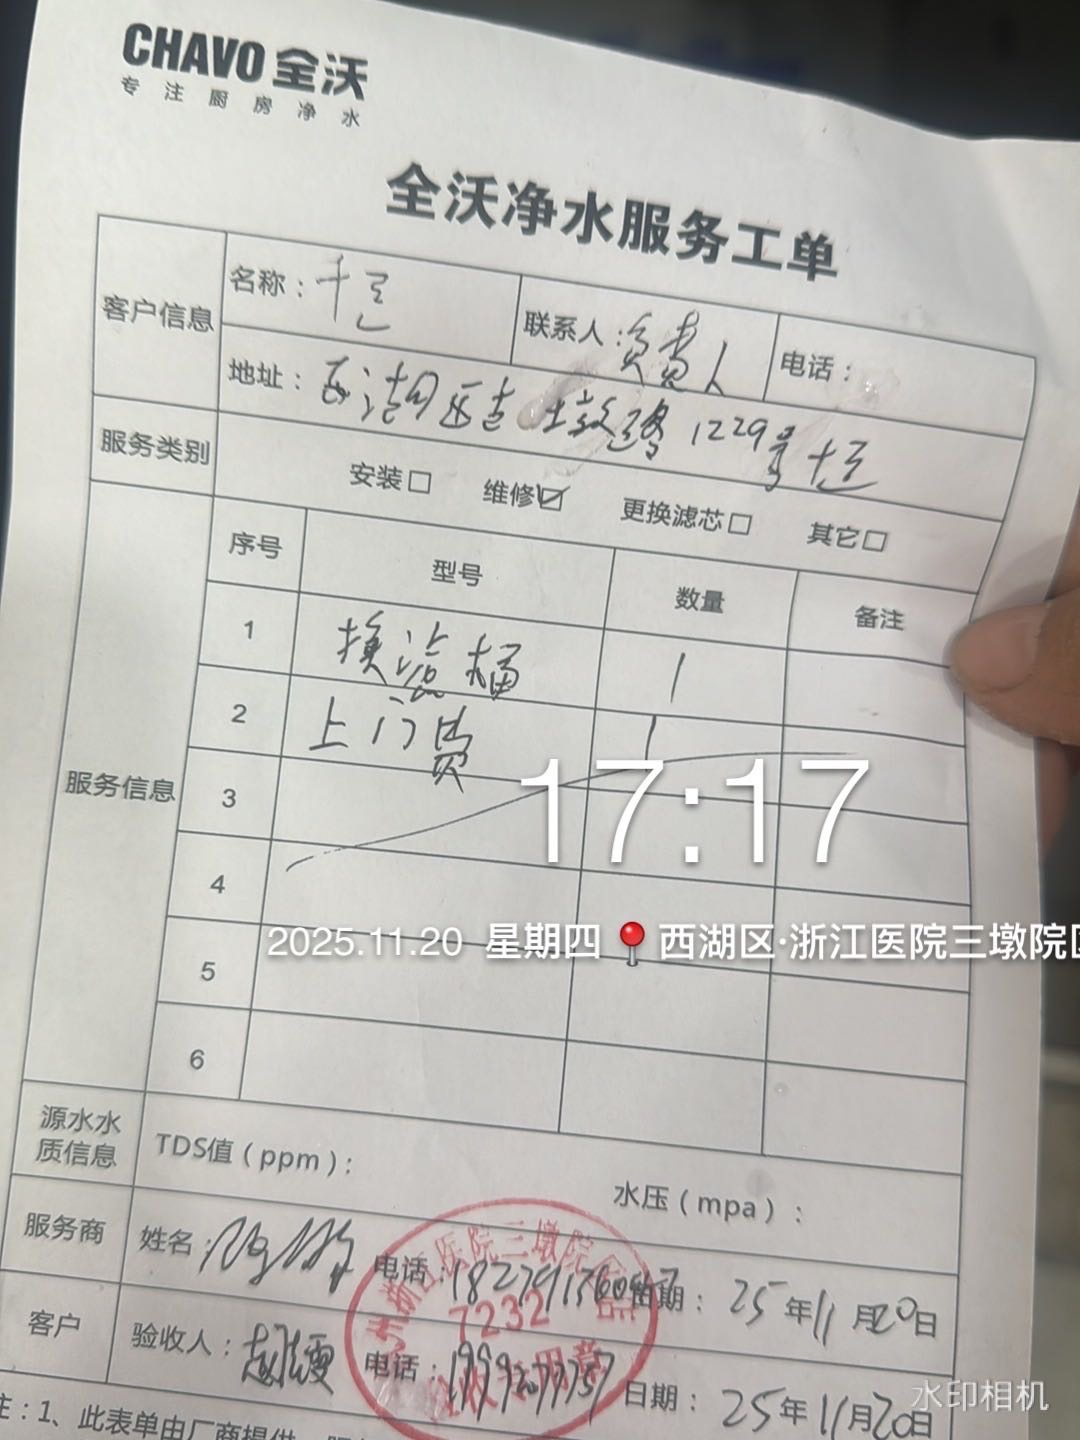 CHAVO 全沃
专注厨房净水
全沃净水服务工单
客户信息
名称：
联系人：负责人
电话：
地址：西湖区古墩路1229号
服务类别
安装□ 维修☑ 更换滤芯□ 其它□
服务信息
序号 型号 数量 备注
1 换 1
2 上门费 1
3
4
5
6
17:17
2025.11.20 星期四 📍西湖区·浙江医院三墩院区
源水水质信息
TDS值（ppm）： 水压（mpa）：
服务商
姓名： 电话： 日期：25年11月20日
浙江医院三墩院
7232
客户
验收人： 电话： 日期：25年11月20日
注：1、此表单由厂商提供
水印相机